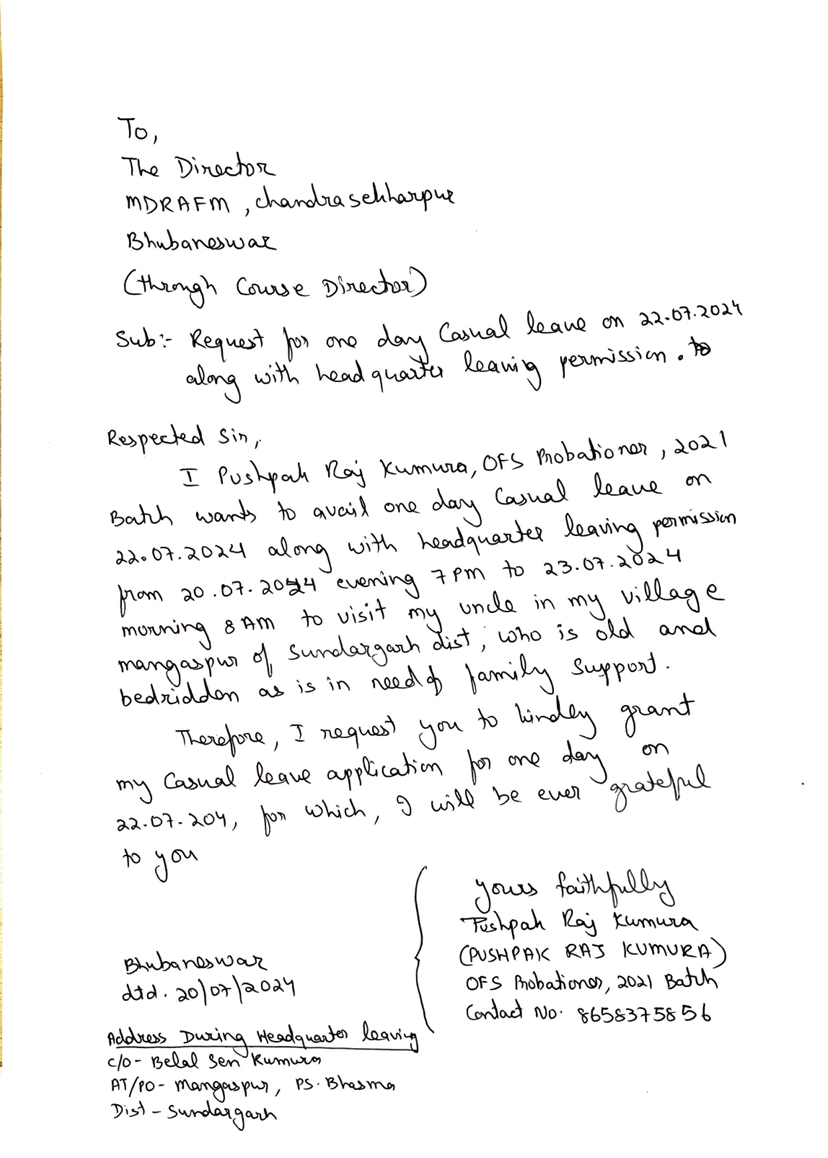 To,
The Director
MDRAFM, chandrasekharpur
Bhubaneswar
(through Course Director)
Sub:- Request for one day Casual leave on 22.07.2024
along with headquarter leaving permission. to
Respected Sir,
I Pushpak Raj Kumura, OFS Probationer, 2021
Batch wants to avail one day Casual leave on
22.07.2024 along with headquarter leaving permission
from 20.07.2024 evening 7 PM to 23.07.2024
morning 8 AM to visit my uncle in my village
mangaspur of Sundargarh dist, who is old and
bedridden as is in need of family support.
Therefore, I request you to kindley grant
my Casual leave application for one day on
22.07.204, for which, I will be ever grateful
to you
yours faithfully
Pushpak Raj Kumura
(PUSHPAK RAJ KUMURA)
OFS Probationer, 2021 Batch
Contact No. 8658375856
Bhubaneswar
dtd. 20/07/2024
Address During Headquarter leaving
C/O- Belal Sen Kumura
AT/PO- Mangaspur, PS. Bhasma
Dist - Sundargarh